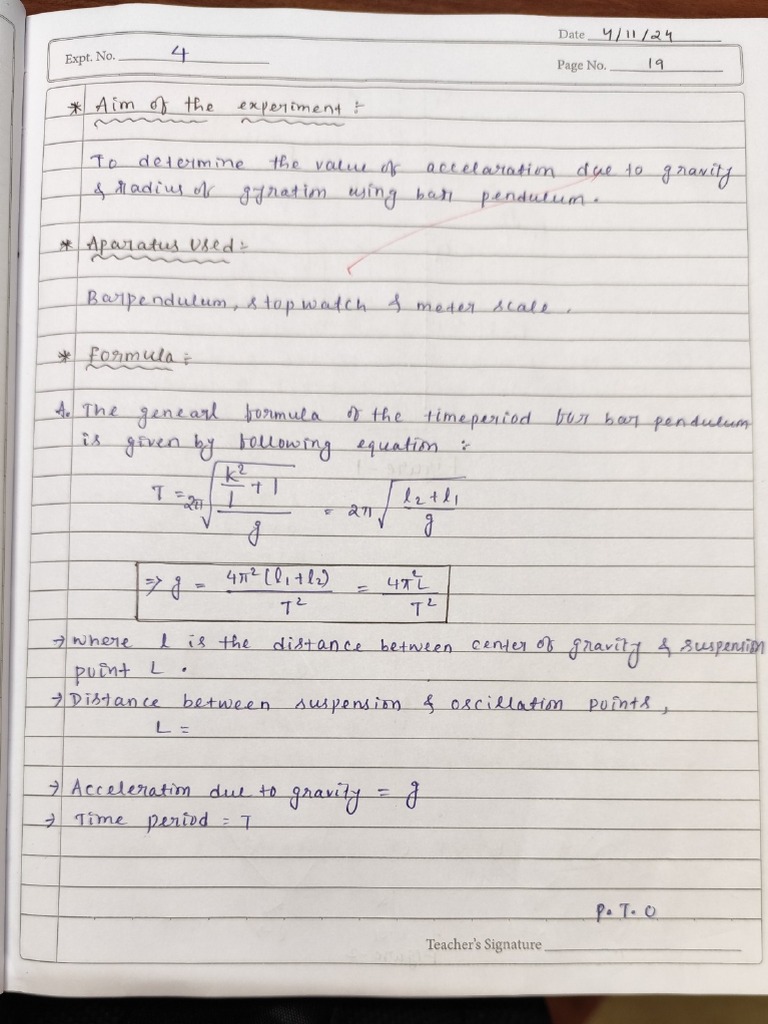 Date 4/11/24
Expt. No. 4
Page No. 19
* Aim of the experiment :-
To determine the value of accelaration due to gravity
& radius of gyration using bar pendulum.
* Aparatus Used :-
Barpendulum, stopwatch & meter scale.
* Formula :-
A. The genearl formula of the timeperiod for bar pendulum
is given by following equation :-
T = 2π √((k²/l + l)/g) = 2π √((l₂+l₁)/g)
⇒ g = 4π²(l₁+l₂)/T² = 4π²L/T²
→ where l is the distance between center of gravity & suspension
point L .
→ Distance between suspension & oscillation points,
L =
→ Acceleration due to gravity = g
→ Time period = T
P.T.O
Teacher's Signature